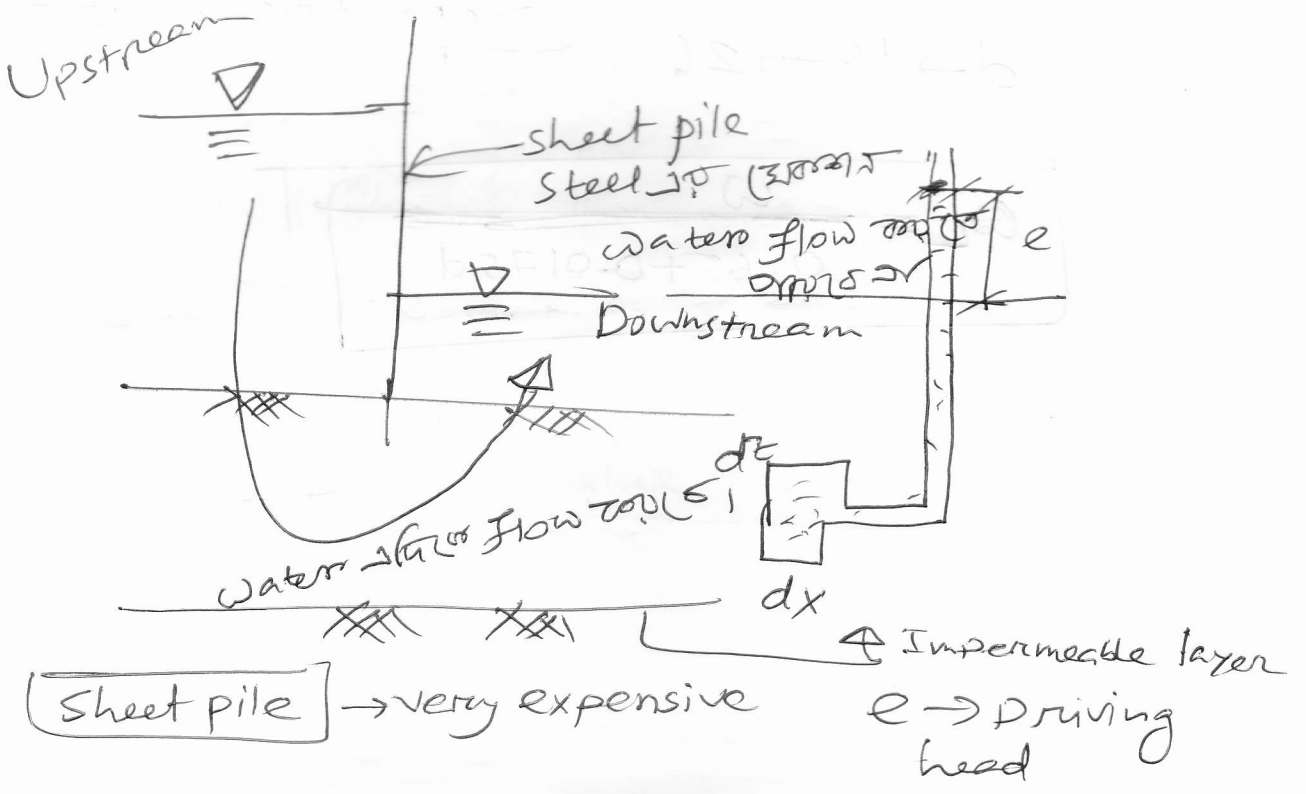 Upstream
sheet pile
Steel এর সেকশন
water flow করছে
e
Downstream
dz
water এদিকে flow করছে।
dx
Impermeable layer
Sheet pile → very expensive
e → Driving
head